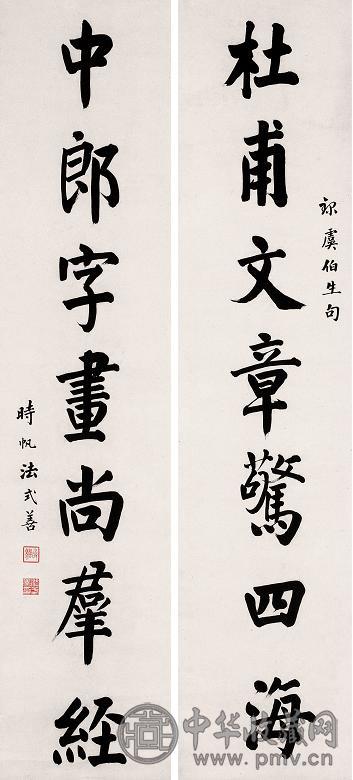 杜甫文章驚四海
錄虞伯生句
中郎字畫尚羣經
時帆法式善
中华收藏网
www.pmv.cn